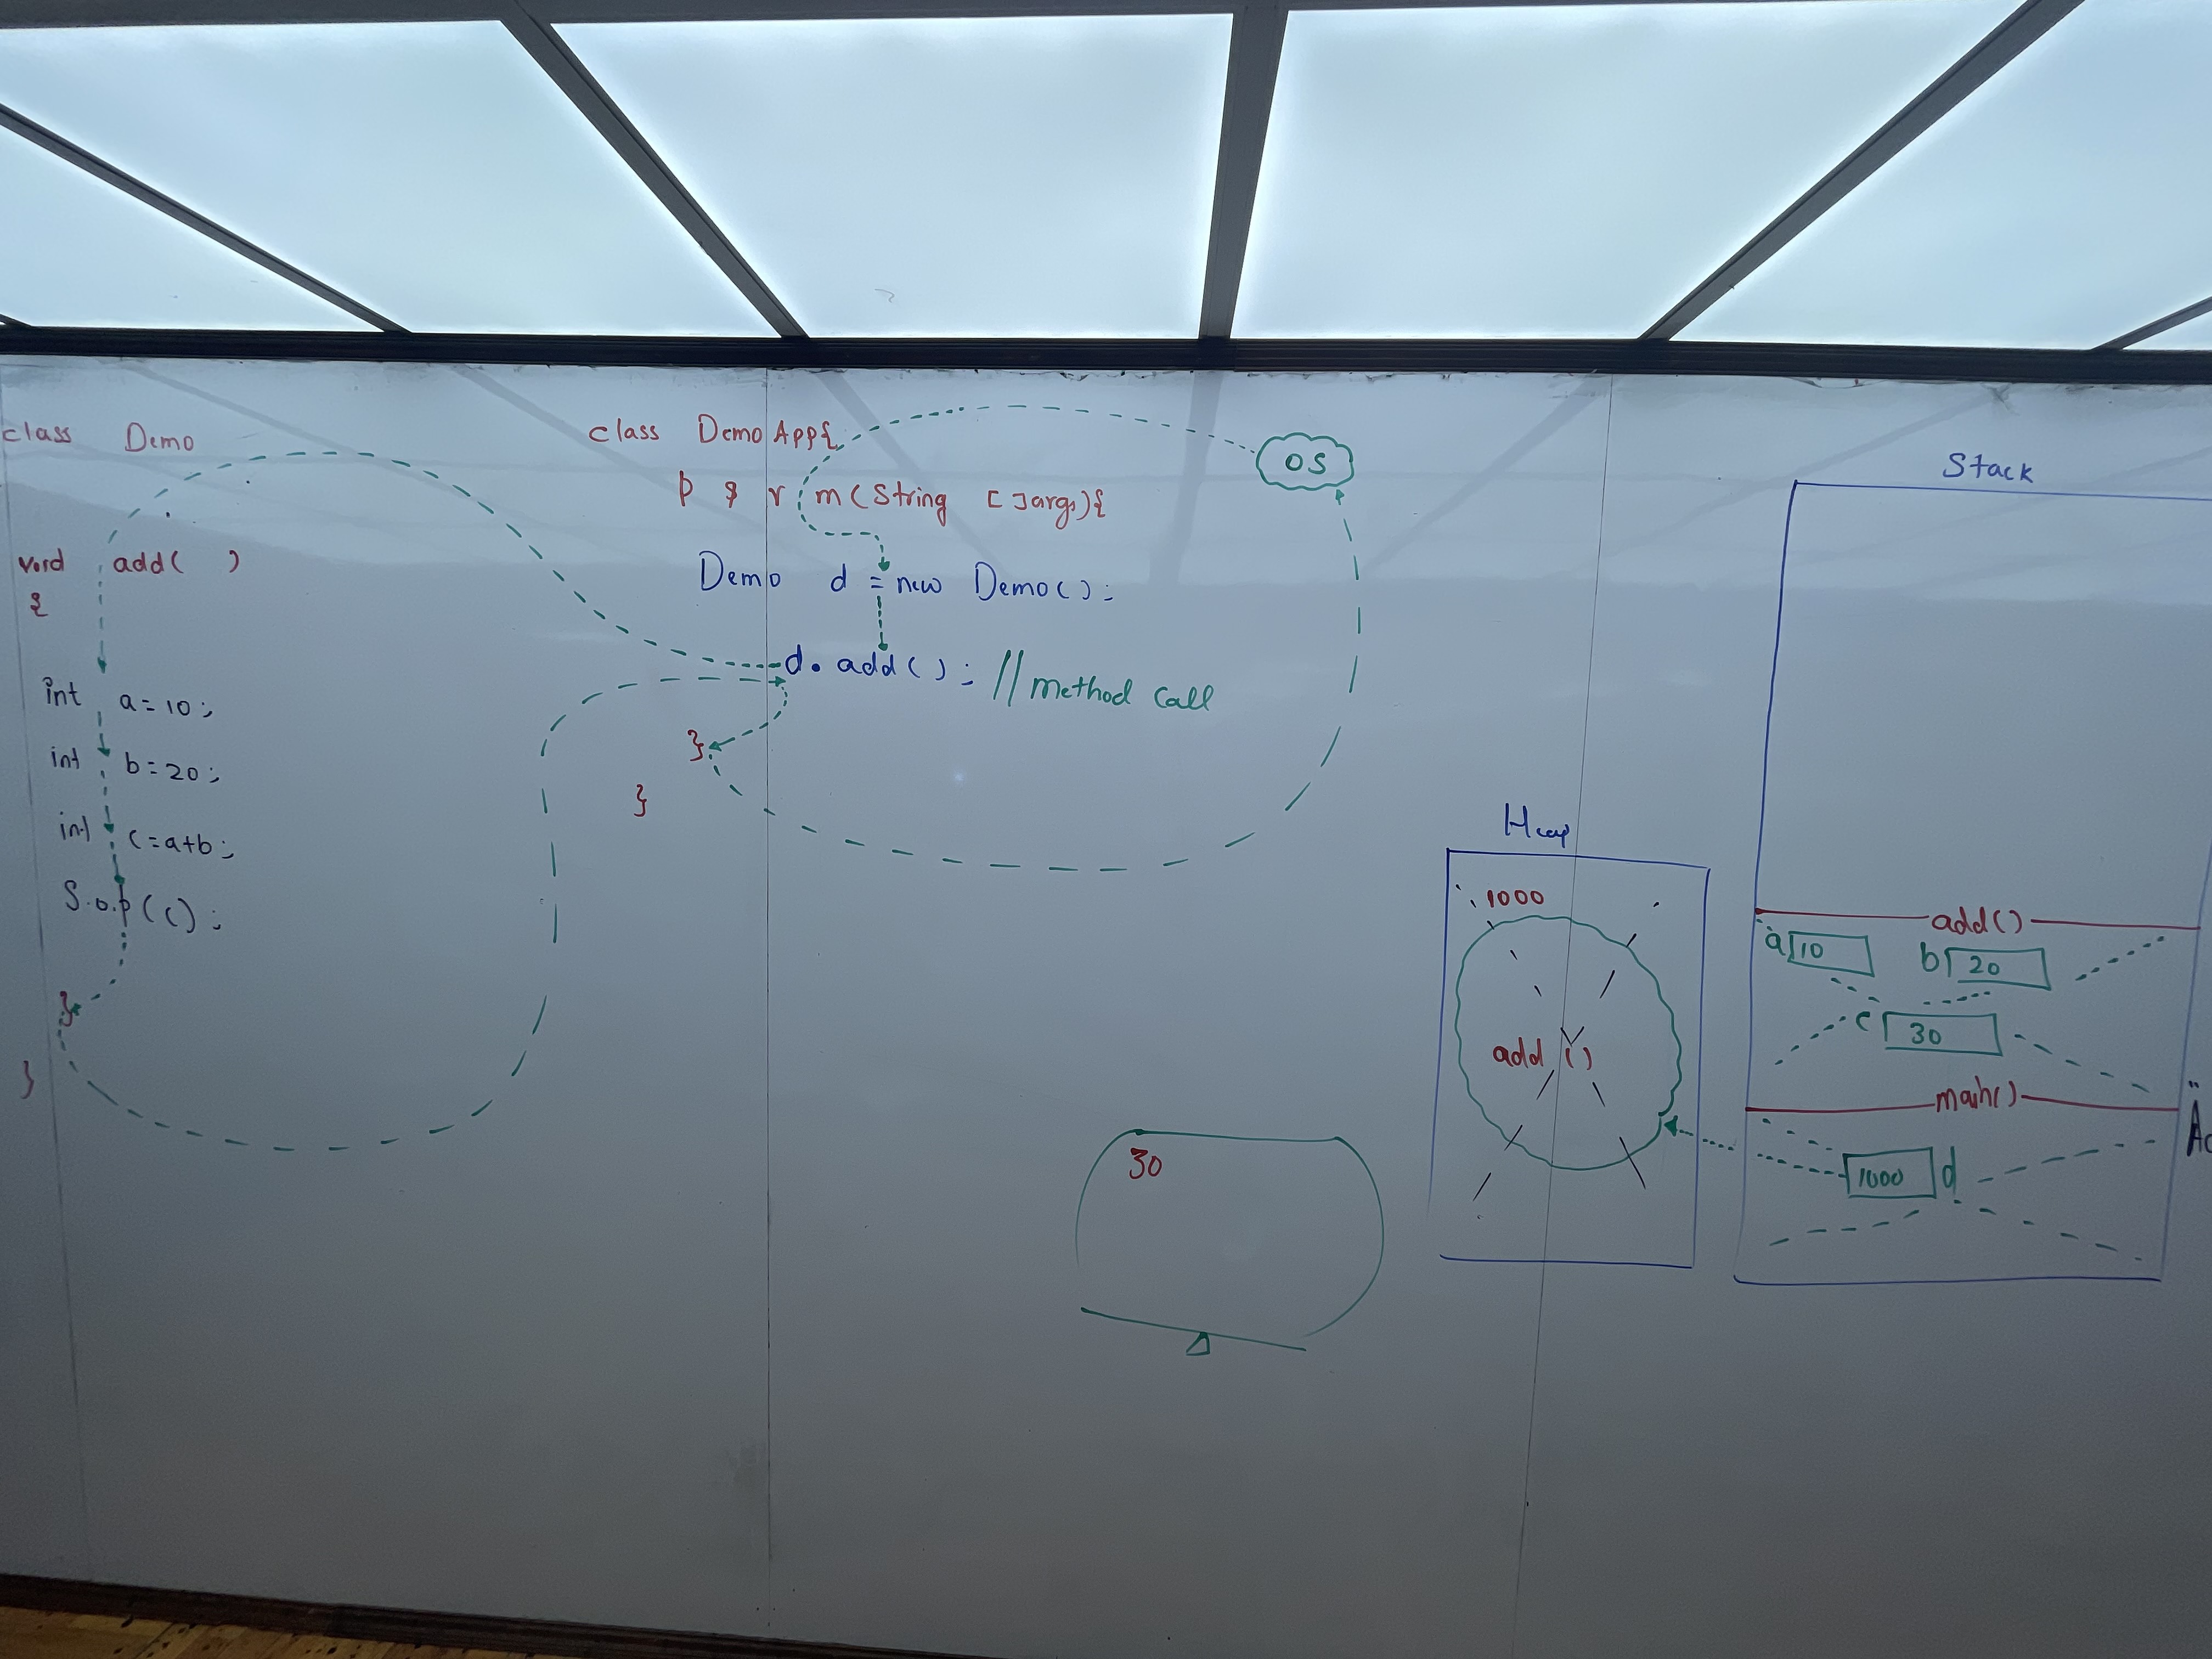 class Demo
void add( )
{
int a=10;
int b=20;
int c=a+b;
S.o.p(c);
}
}
class DemoApp{
p s v m(String []args){
Demo d = new Demo();
d.add(); //method call
}
}
OS
30
Heap
1000
add()
Stack
add()
a 10
b 20
c 30
main()
1000 d